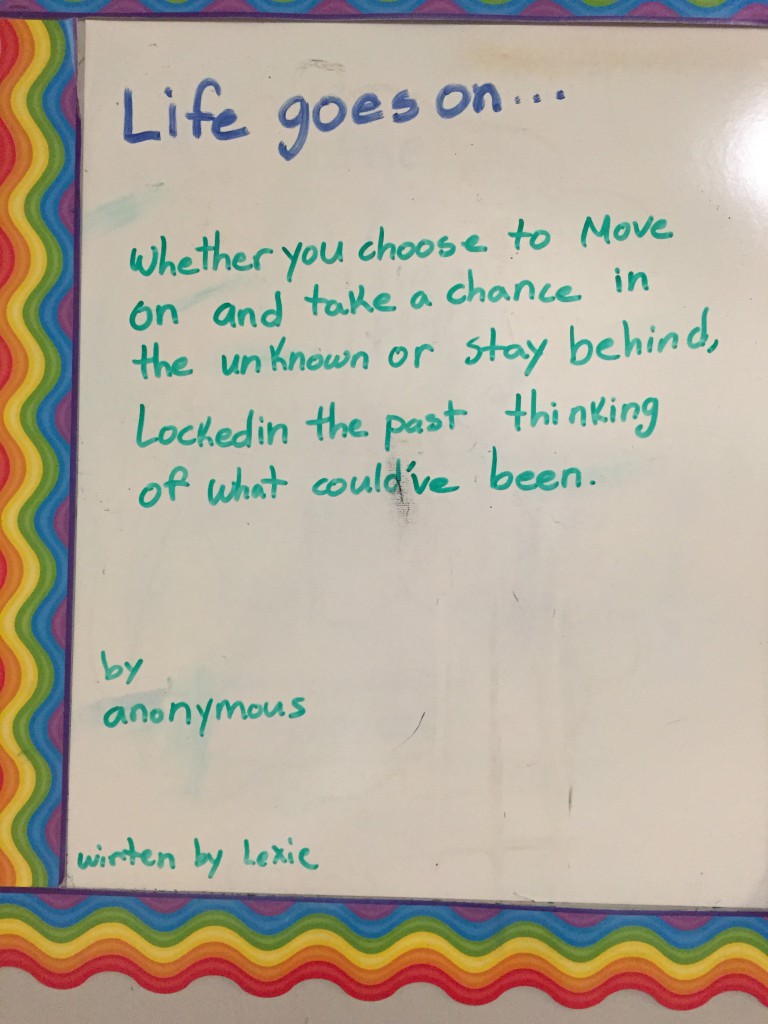 Life goes on...
Whether you choose to Move
on and take a chance in
the unknown or stay behind,
Locked in the past thinking
of what could've been.
by
anonymous
wirten by Lexie